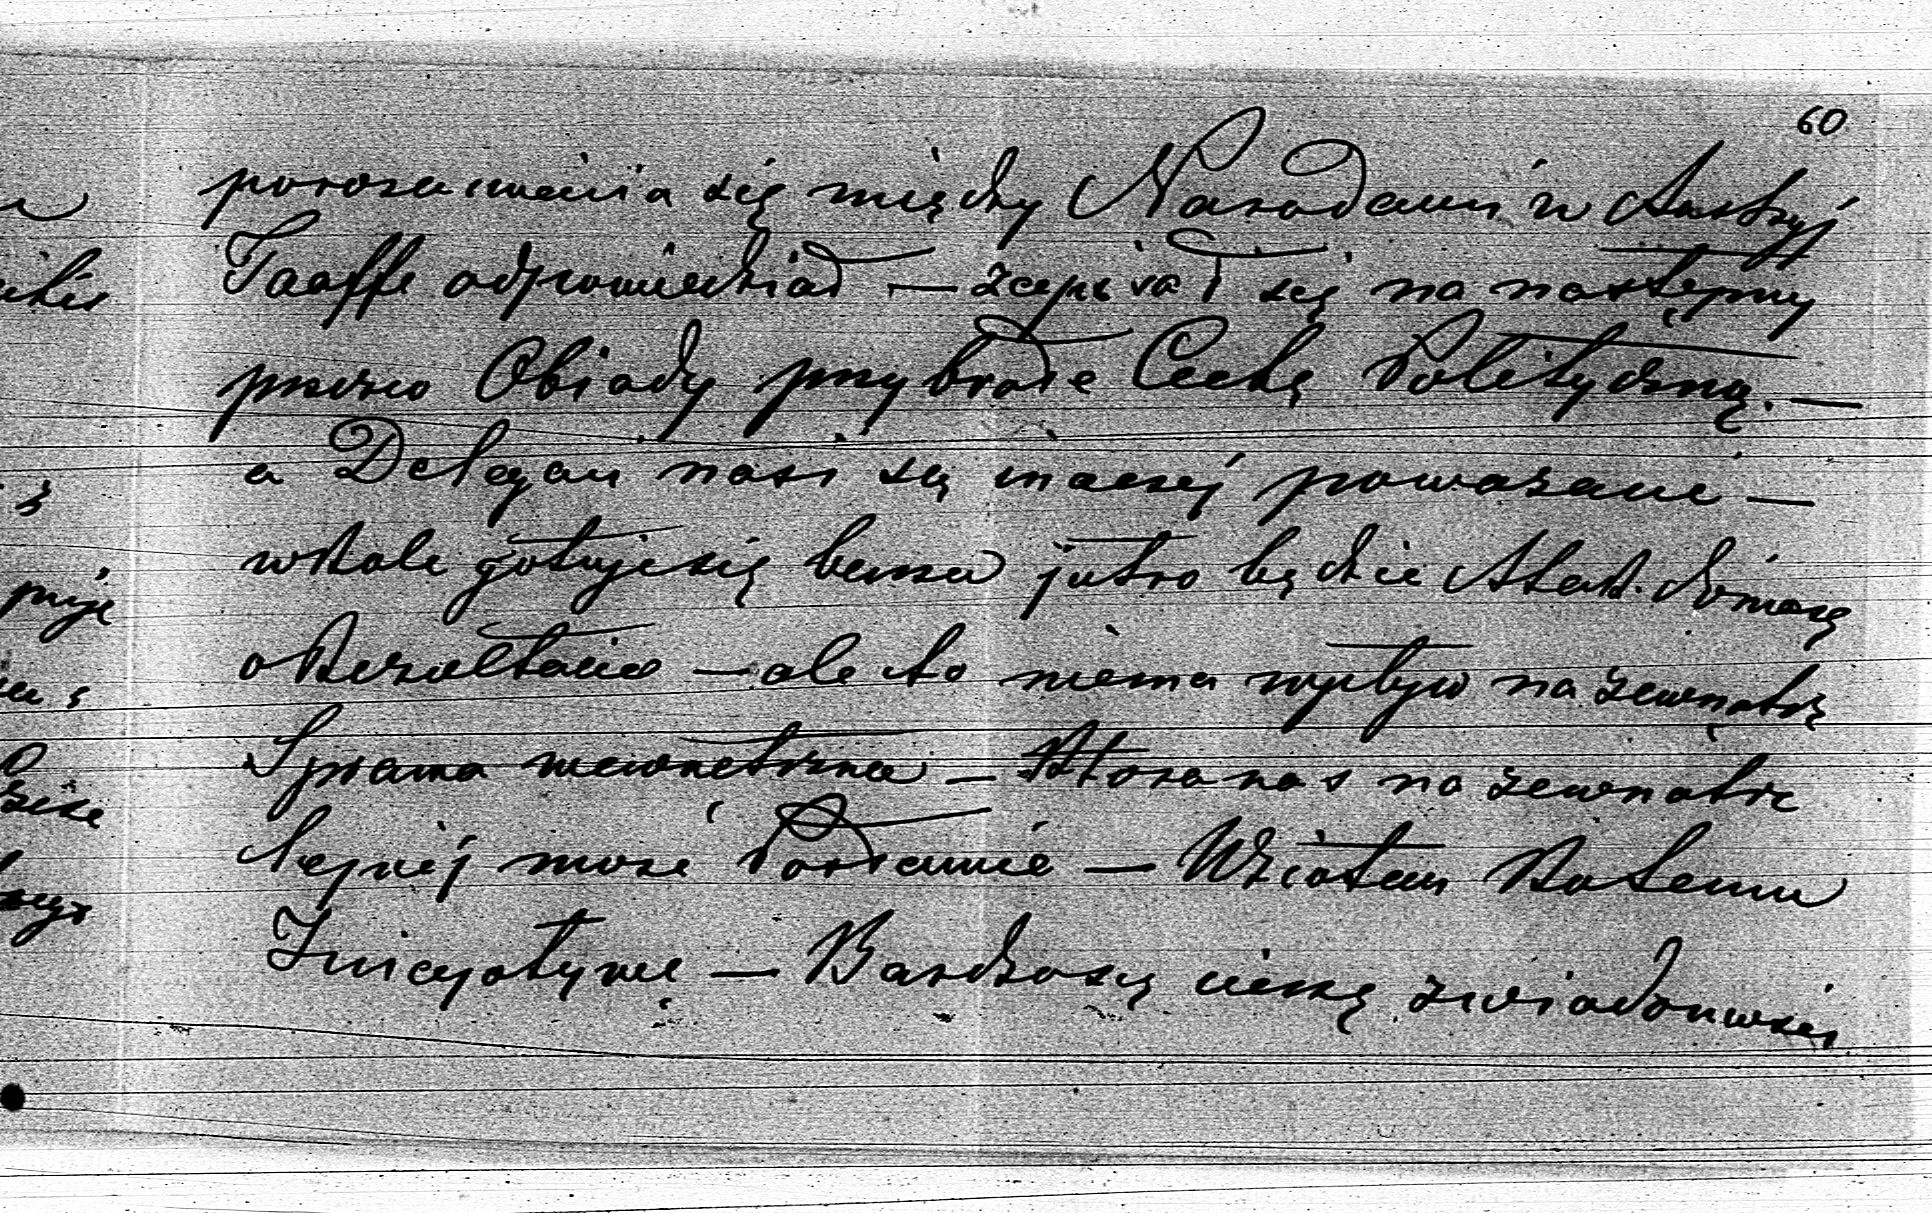 60
porozumienia się między Narodami w Austryj
Taaffe odpowiedział — zapisał się na następny
przeco Obiady przybrałe Cechę Polityczną. —
a Delegaci nasi są inaczej poważani —
wkole gotuje się burza jutro będzie Atak. donoszę
o Rezultacie — ale to niema wpływ na zewnątrz
Sprawa wewnetrzna — Ktora nas na zewnatrz
lepiéj može Postawić — Wziołem Ko temu
Inicyatywe — Bardzo się cieszę z wiadomości
prije